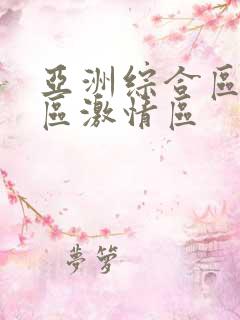 亞洲綜合區
區激情區
夢箩